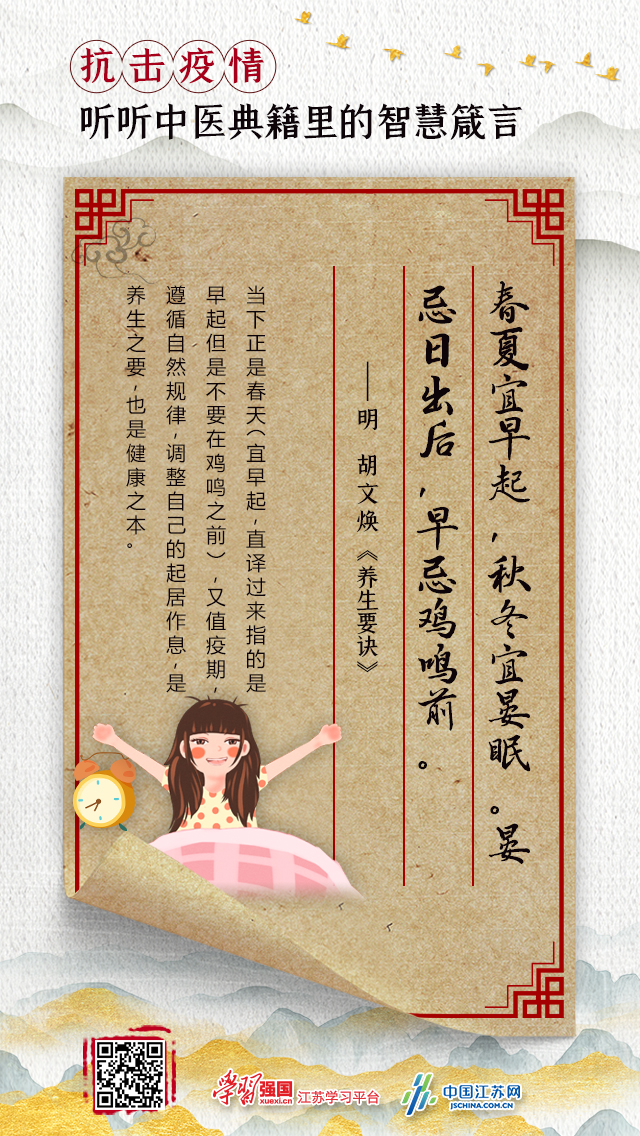 抗击疫情
听听中医典籍里的智慧箴言
春夏宜早起，秋冬宜晏眠。晏
忌日出后，早忌鸡鸣前。
——明 胡文焕《养生要诀》
当下正是春天（宜早起，直译过来指的是
早起但是不要在鸡鸣之前），又值疫期，
遵循自然规律，调整自己的起居作息，是
养生之要，也是健康之本。
学习强国
xuexi.cn
江苏学习平台
中国江苏网
JSCHINA.COM.CN